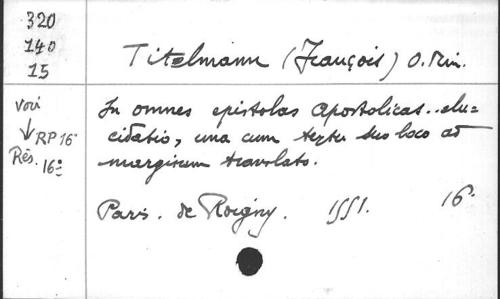 320
140
15
Titelmann (François) O. Min.
voir
↓ RP 16°
Rés. 16°
In omnes epistolas apostolicas.. elu-
cidatio, una cum textu suo loco ad
marginem translato.
Paris. de Roigny. 1551. 16°